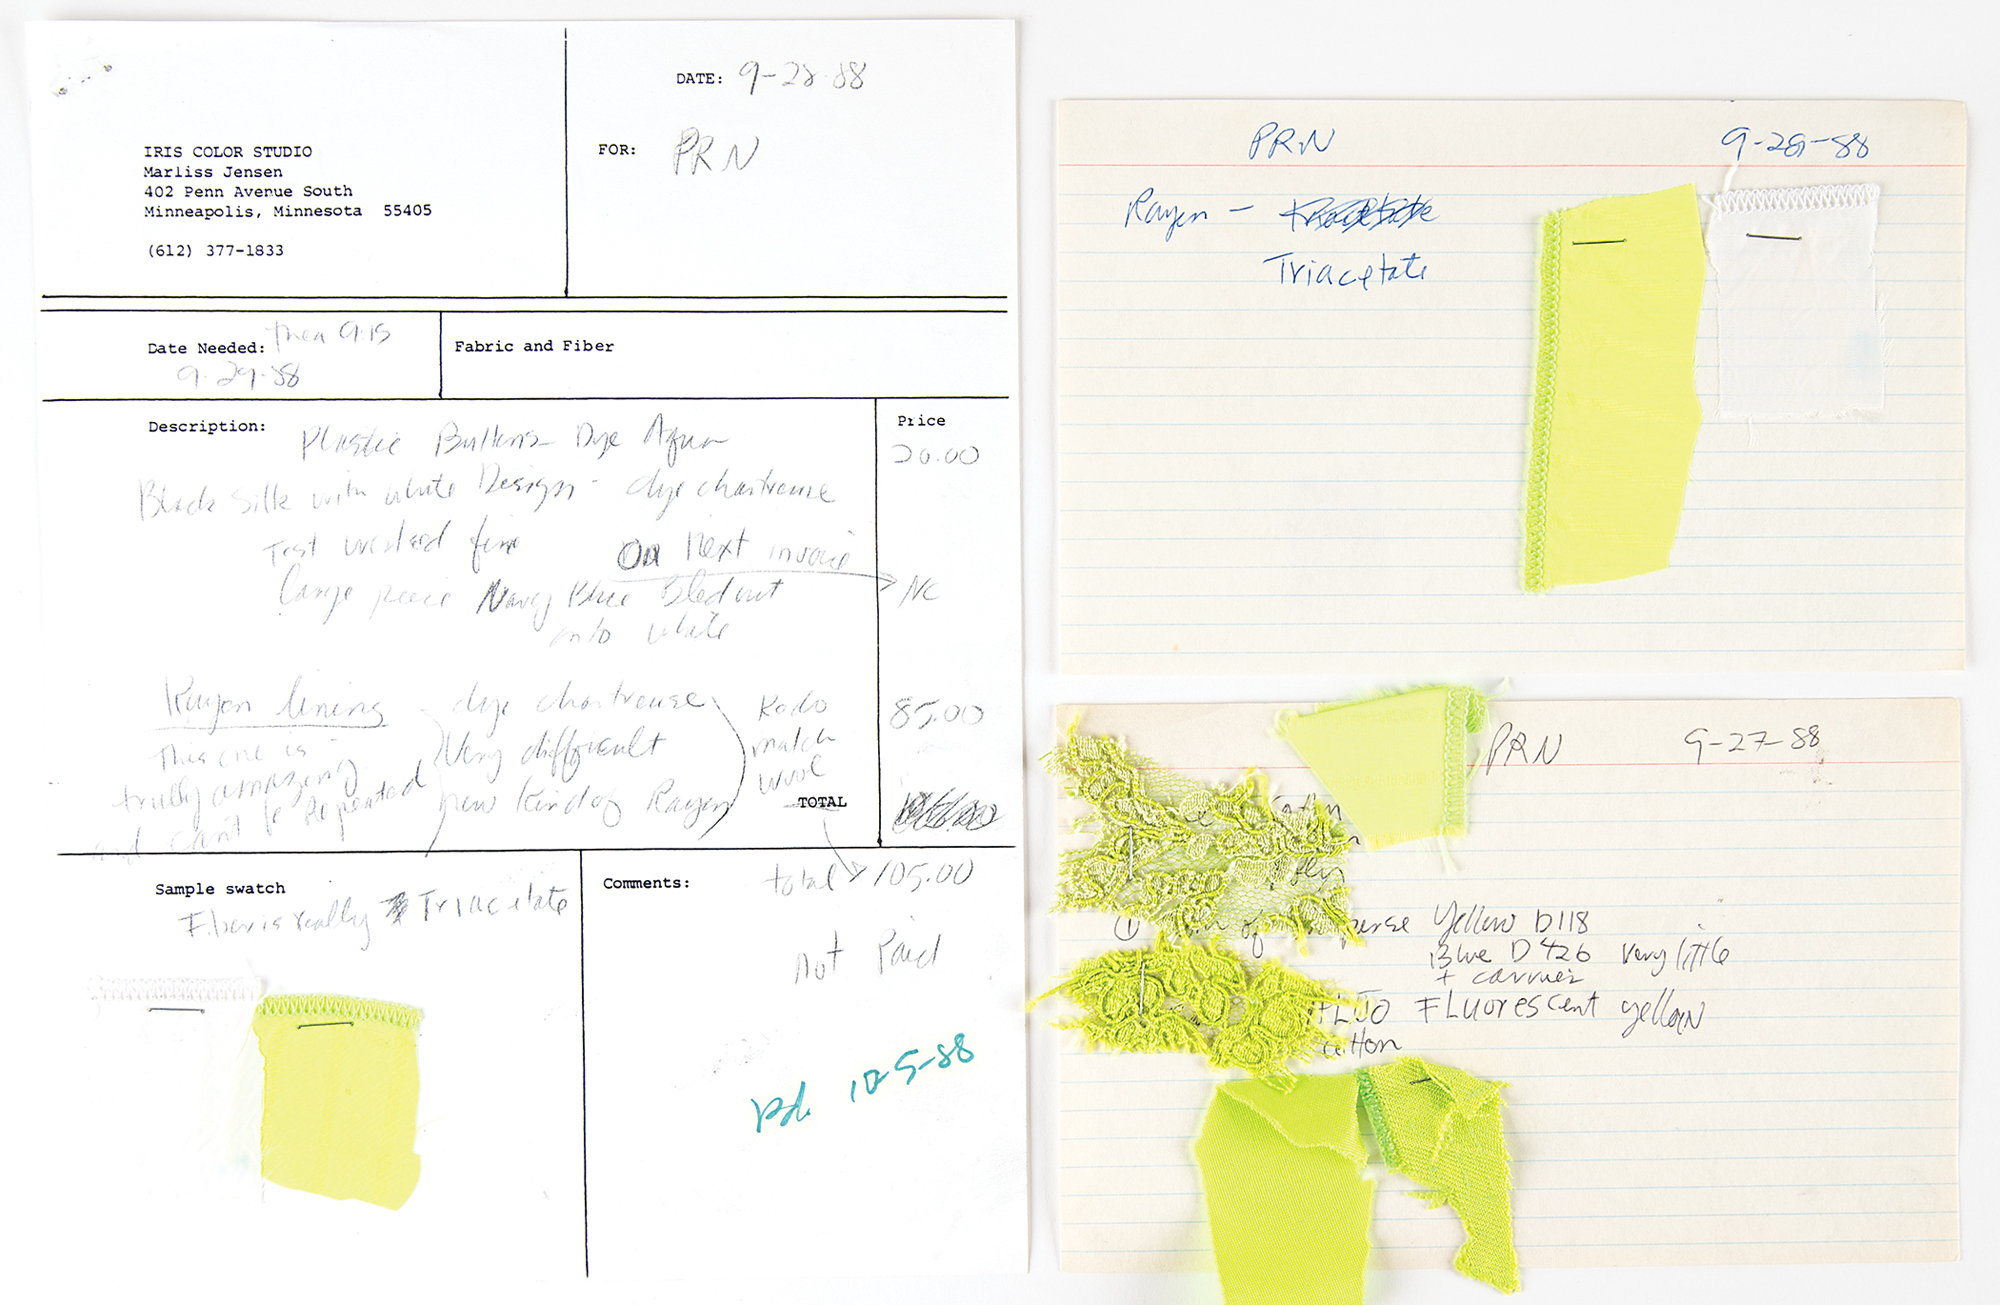 DATE: 9-28-88
FOR: PRN
IRIS COLOR STUDIO
Marliss Jensen
402 Penn Avenue South
Minneapolis, Minnesota 55405
(612) 377-1833
Date Needed: 9:15
9-29-88
Fabric and Fiber
Description:
Price
Plastic Buttons Dye Aqua
20.00
Black Silk with white Design - dye chartreuse
Test worked fine
On Next invoice
Large piece Navy Blue Bled out
onto white
NC
Rayon lining
dye chartreuse
Very difficult
new Kind of Rayon
This one is
trully amazing
and can't be Repeated
Redo
match
wool
85.00
TOTAL
total 105.00
Sample swatch
Fiber is really Triacetate
Comments:
Not Paid
Pd. 10-5-88
PRN
9-28-88
Rayon -
Triacetate
PRN
9-27-88
① of Yellow D118
Blue D426 very little
+ carrier
Fluorescent yellow